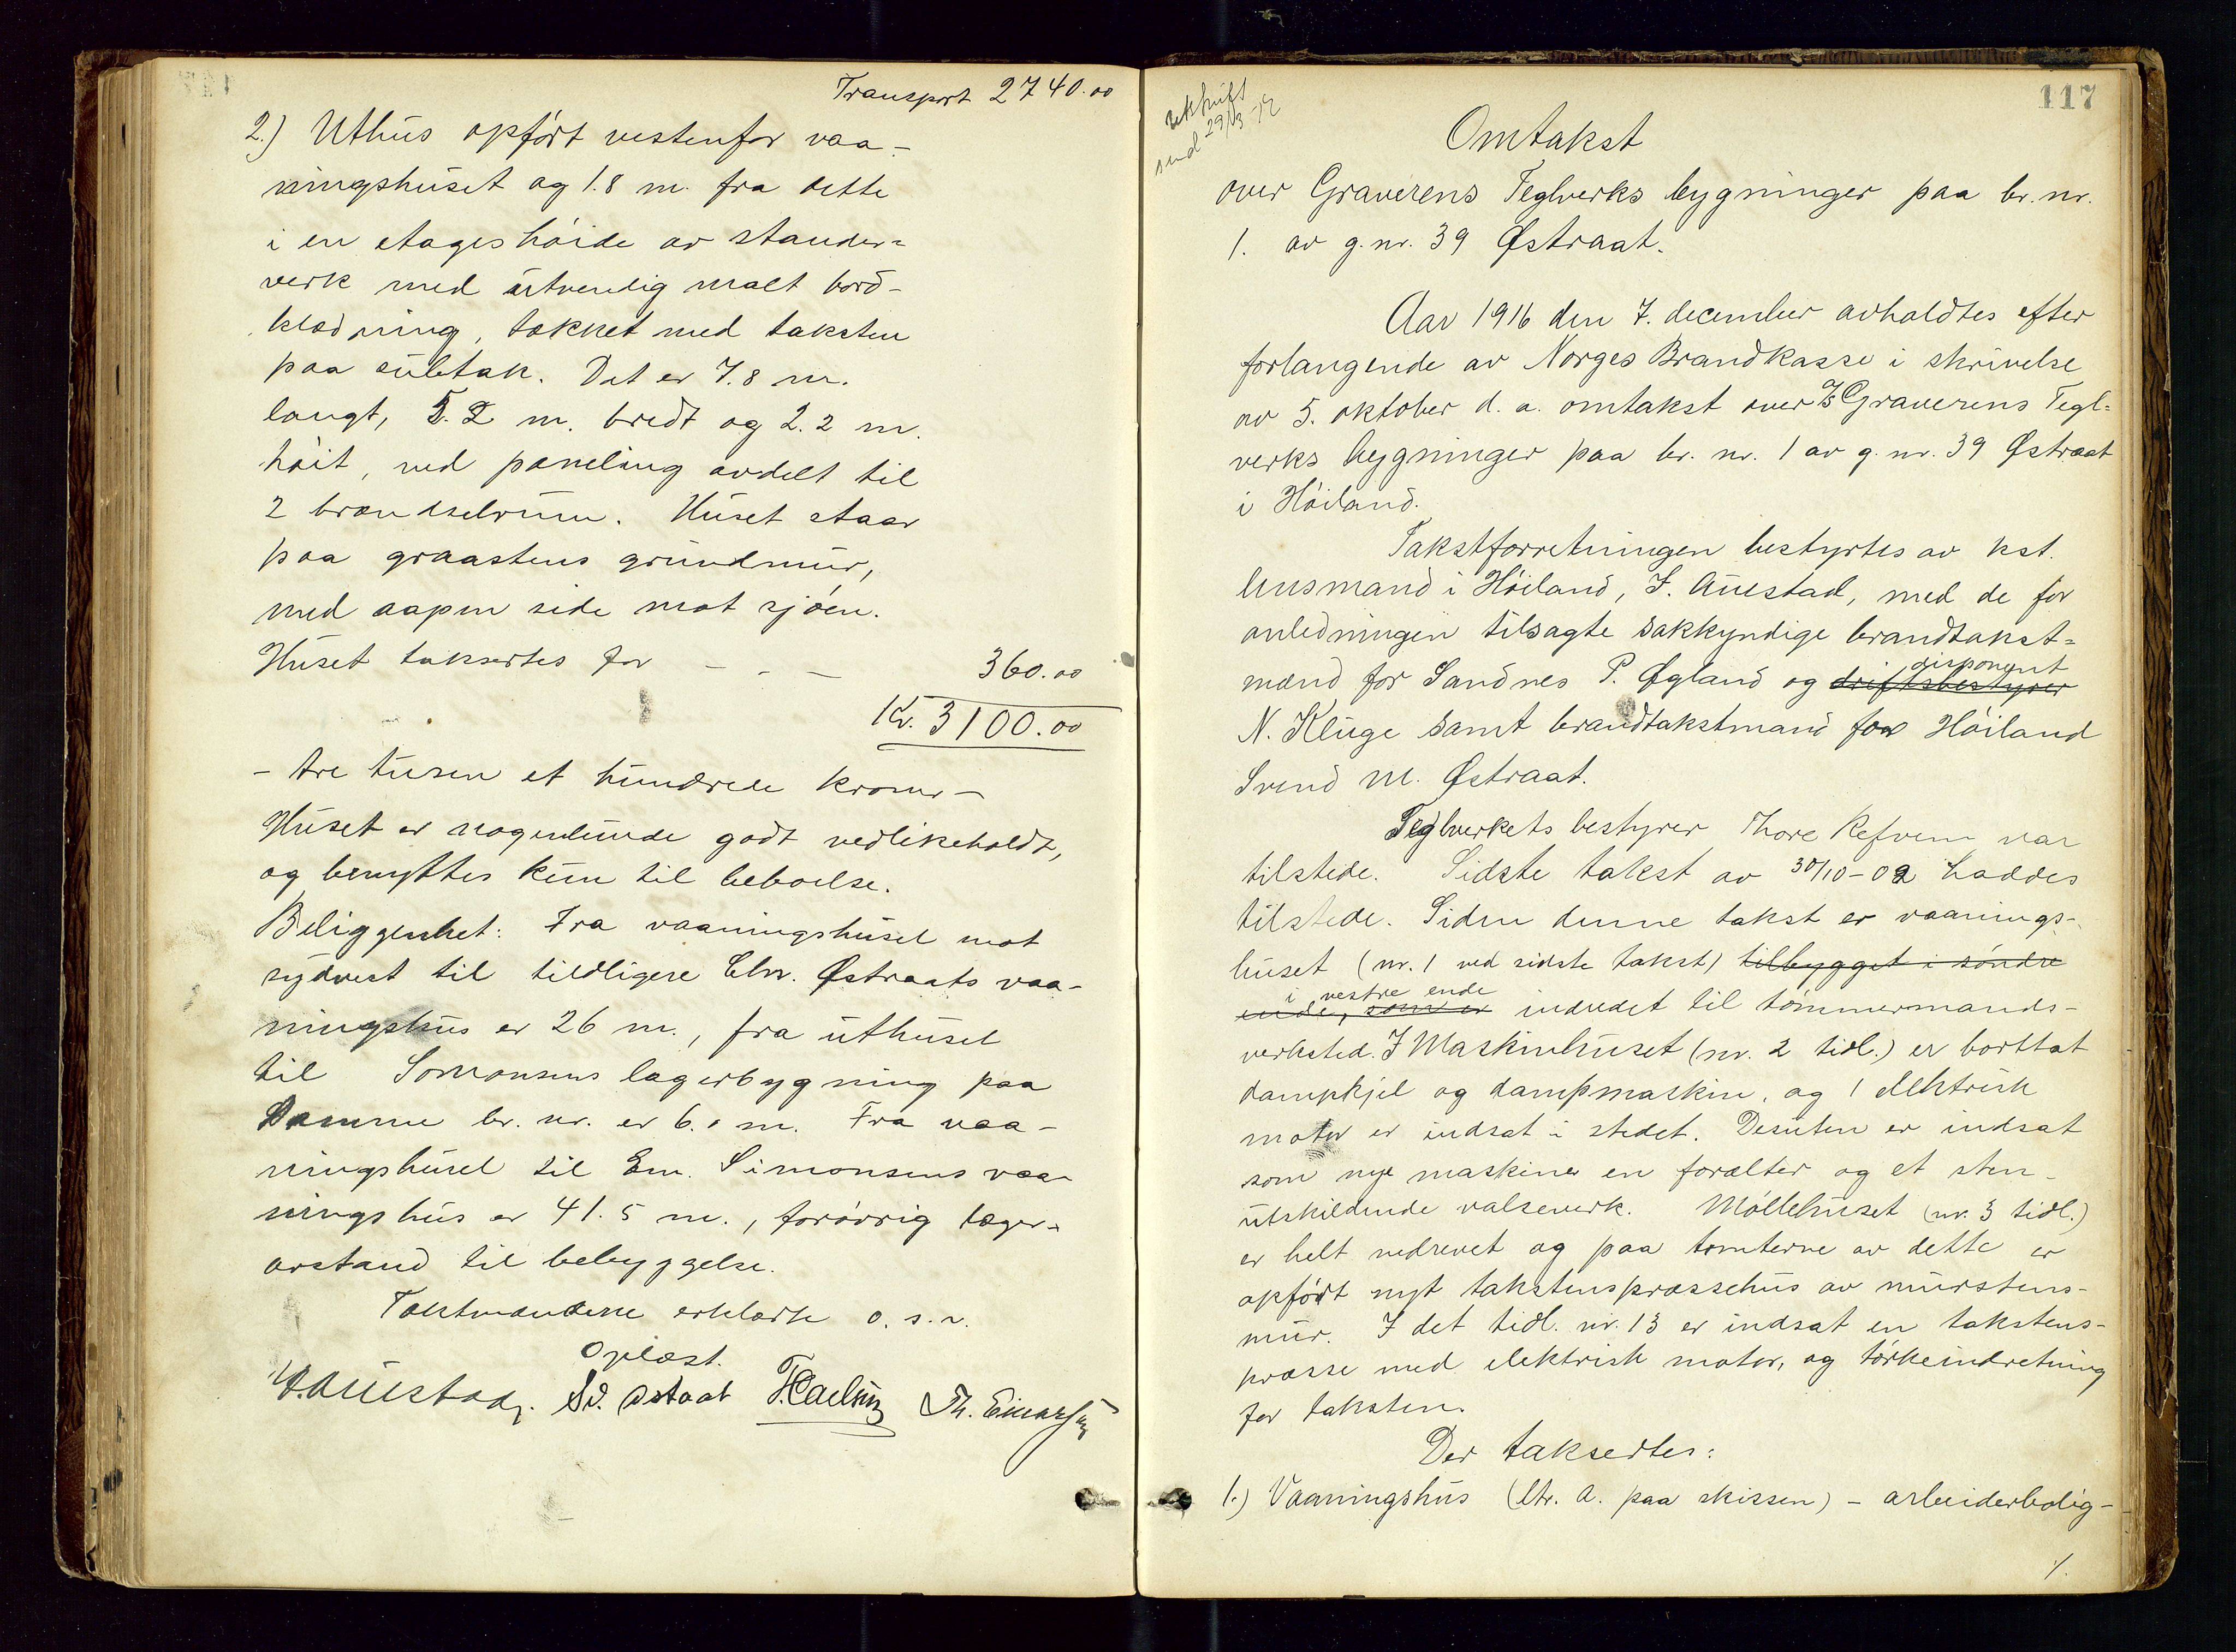 Transport 2740.00
2.) Uthus opført vestenfor vaa-
ningshuset og 1.8 m. fra dette
i en etages høide av stander-
verk med utvendig malt bord-
klædning, tækket med taksten
paa sutak. Det er 7.8 m.
langt, 5.2 m. bredt og 2.2 m.
høit, ved paneling avdelt til
2 brændselrum. Huset staar
paa graastens grundmur,
med aapen side mot sjøen.
Huset takseres for - - - 360.00
Kr. 3100.00
- tre tusen et hundrede kroner -
Huset er nogenlunde godt vedlikeholdt,
og benyttes kun til beboelse.
Beliggenhet: Fra vaaningshuset mot
sydvest til tidligere Chr. Østraats vaa-
ningshus er 26 m., fra uthuset
til Simonsens lagerbygning paa
samme br. nr. er 6.0 m. Fra vaa-
ningshuset til Em. Simonsens vaa-
ningshus er 41.5 m., forøvrig lager-
avstand til bebyggelse.
Takstmændene erklærte o. s. v.
Oplæst.
J. Auestad. Sv. Østraat Th. Einarsen
117
utskrift
send 29/3-17
Omtakst
over Graverens Teglverks bygninger paa br. nr.
1. av g. nr. 39 Østraat.
Aar 1916 den 7. december avholdtes efter
forlangende av Norges Brandkasse i skrivelse
av 5. oktober d. a. omtakst over I/S Graverens Tegl-
verks bygninger paa br. nr. 1 av g. nr. 39 Østraat
i Høiland.
Takstforretningen bestyrtes av kst.
lensmand i Høiland, J. Auestad, med de for
anledningen tilsagte sakkyndige brandtakst-
mænd for Sandnes P. Øgland og driftsbestyrer disponent
N. Kluge samt brandtakstmand for Høiland
Svend M. Østraat.
Teglverkets bestyrer Thore Refvem var
tilstede. Sidste takst av 30/10-02 haddes
tilstede. Siden denne takst er vaanings-
huset (nr. 1 ved sidste takst) tilbygget i søndre
ende, som er i vestre ende indredet til tømmermands-
verksted. I Maskinhuset (nr. 2 tidl.) er borttat
dampkjel og dampmaskin, og 1 elektrisk
motor er indsat i stedet. Desuten er indsat
som nye maskiner en forælter og et sten-
utskildende valseverk. Møllehuset (nr. 3 tidl.)
er helt nedrevet og paa tomterne av dette er
opført nyt takstenspræssehus av murstens-
mur. I det tidl. nr. 13 er indsat en takstens-
præsse med elektrisk motor, og tørkeindretning
for taksten.
Der taksertes:
1.) Vaaningshus (ltr. a. paa skissen) - arbeiderbolig-
./.